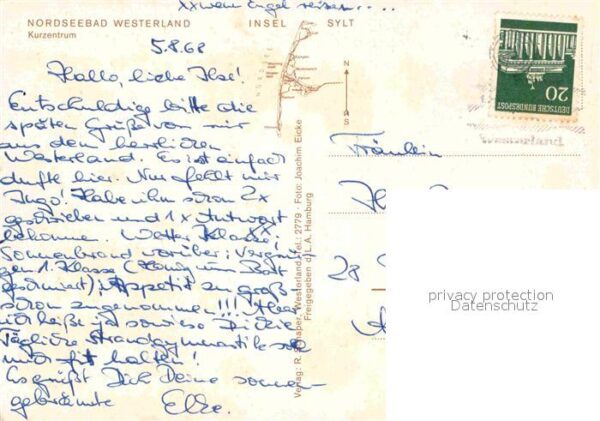 xx wenn Engel reisen....
NORDSEEBAD WESTERLAND INSEL SYLT
Kurzentrum
5.8.68
Hallo, liebe Ilse!
Entschuldige bitte die
späten Grüße von mir
aus dem herrlichen
Westerland. Es ist einfach
dufte hier. Nur fehlt mir
Ingo! Habe ihm schon 2x
geschrieben und 1x Antwort
bekommen. Wetter Klasse xx;
Sonnenbrand vorüber; Vergnü-
gen 1. Klasse (Honig um Bart
geschmiert); Appetit zu groß -
schon zugenommen!!! Aber
ich heiße ja sowieso Dicke
Tägliche Strandgymnastik soll
mich fit halten!
Es grüßt Dich Deine sonnen-
gebräunte Elke.
Verlag: R. Schaper, Westerland, Tel.: 2779 · Foto: Joachim Eicke
Freigegeben d. L.A. Hamburg
N
S
20
DEUTSCHE BUNDESPOST
Westerland
Fräulein
28
privacy protection
Datenschutz